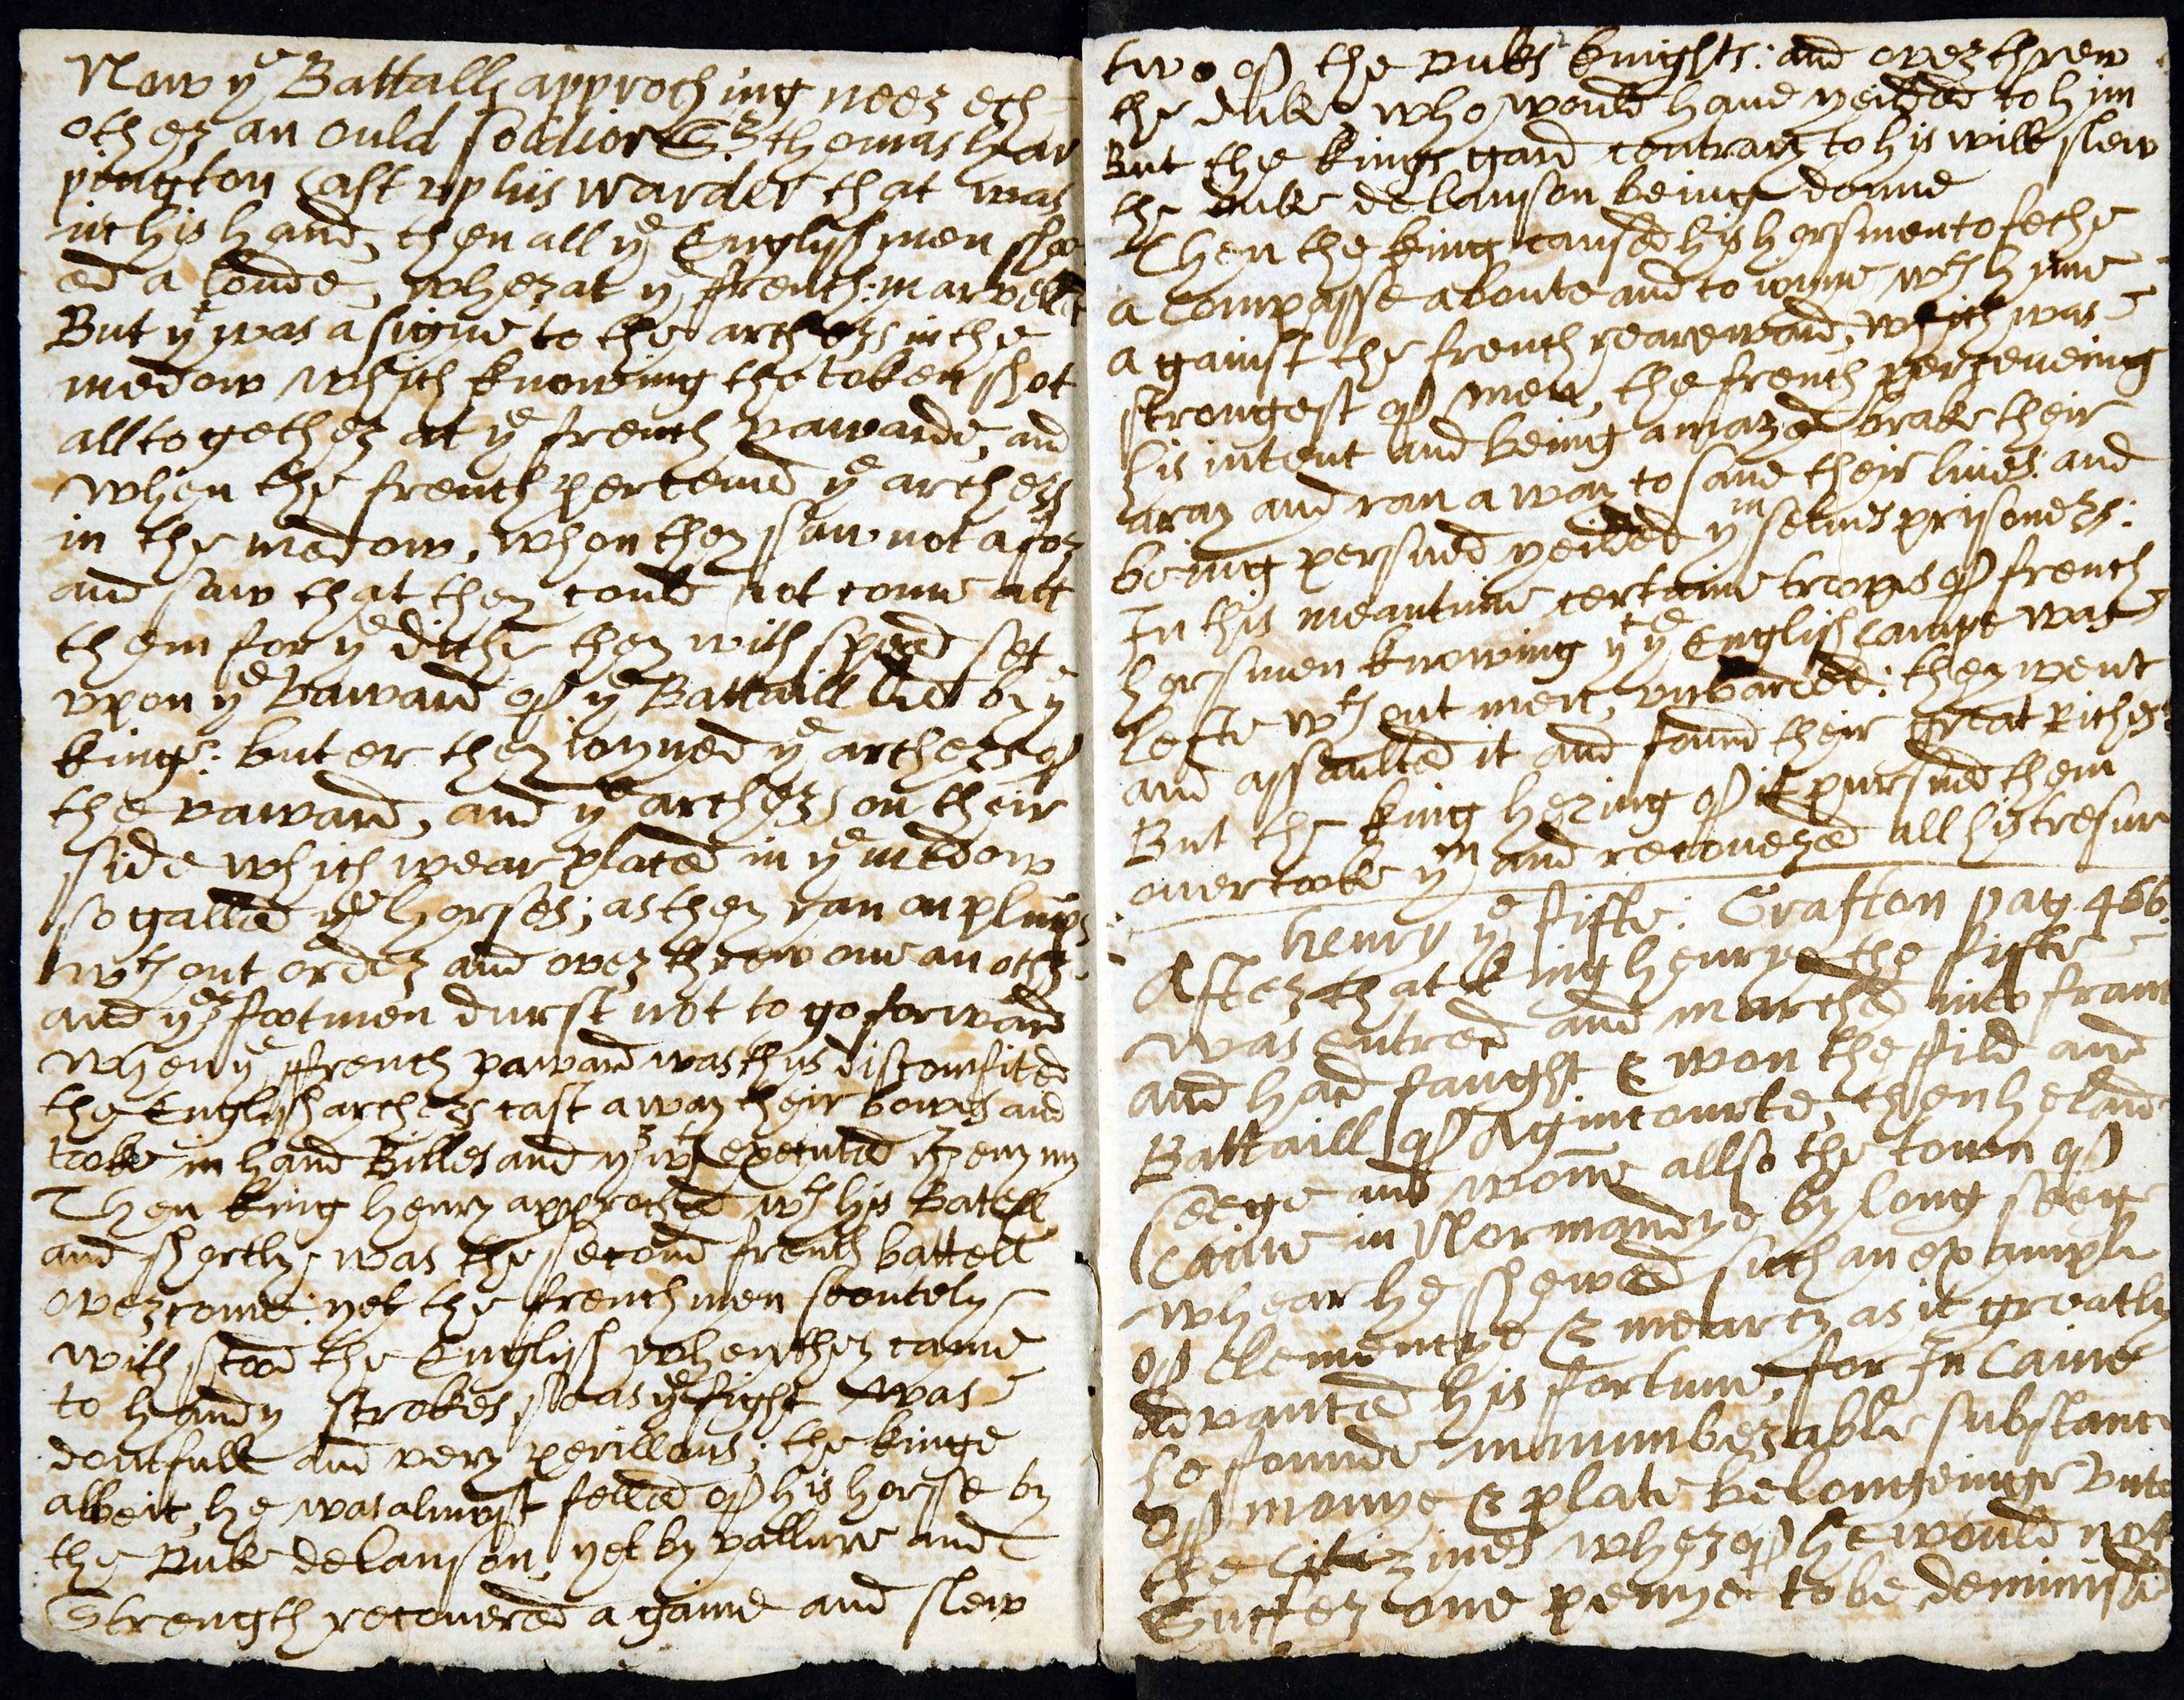 Now yᵉ Battalls approching neer ech
other an ould soldior Sʳ thomas har
pington Cast up his warder that was
in his hand, then all yᵉ Englysh men sho
ed a loude, wherat yᵉ french marvell
But yᵗ was a signe to the archers in the
medow which knowing the token shot
alltogether at yᵉ french vawarde, and
when the french perceued yᵉ archers
in the medow, whon they saw not afor
and saw that they could not come att
them for yᵉ diche they with speed set
vpon yᵉ vaward of yᵉ Battaill led by yᵉ
king: but er they ioyned yᵉ archers of
the vaward, and yᵉ archers on their
side which wear placed in yᵉ medow
so galled yᵉ horses; as they ran on plumps
wᵗʰ out order and overthrew one an othr
and yᵉʳ footmen durst not to go forward
when yᵉ french vaward was thus discomfited
the Englysh archers cast away their bowes and
tooke in hand Billes and yʳ wᵗʰ executed yʳ enymy
Then king henry approched wᵗʰ his Batell
and shortly, was the second french battell
overcome: yet the frenchmen stoutely
with stood the Englysh when they came
to handy strokes, so as yᵉ fight was
doutfull and very perillous; the kinge
albeit, he was almost felled of his horse by
the Duke de lanson, yet by vallure and
Strength recouered againe and slew
two of the Duks knights: and overthrew
the duke, who would haue yeilded to him
But the kings gard contrary to his will slew
the duke de lanson being donne
Then the king caused his horsmen to fetche
a compasse aboute and to ioyne wᵗʰ hime
against the french reareward, which was
strongest of men, the french perceueing
his intent and being amazed brake their
aray and ran away to saue their liues and
being persued yeilded yᵐ selues prysoners:
In this meantime certaine tropes of french
horsmen knowing yᵗ yᵉ English Campe was
lefte wᵗʰ out men, unbarred: they went
and assaulted it and found their great Riches
But the king hering of it pursued them
ouertooke yᵐ and recouered all his tresur
henry yᵉ fifte: Grafton pag. 466.
After that king henrye the fifte
was entred and marched into franc
and had faught & won the fild and
Battaill of Agincourte, then he laid
Seege and wonne allso the town of
Caine in Normandye by long seeg
whear he shewed such an exampl
of Clemencye & mearcy as it greatly
advanced his fortune, for In Caine
he founde innumberable substanc
Of monye & plate belongeinge Vnto
the Citizines wherof he would not
Suffer one penye to be deminish